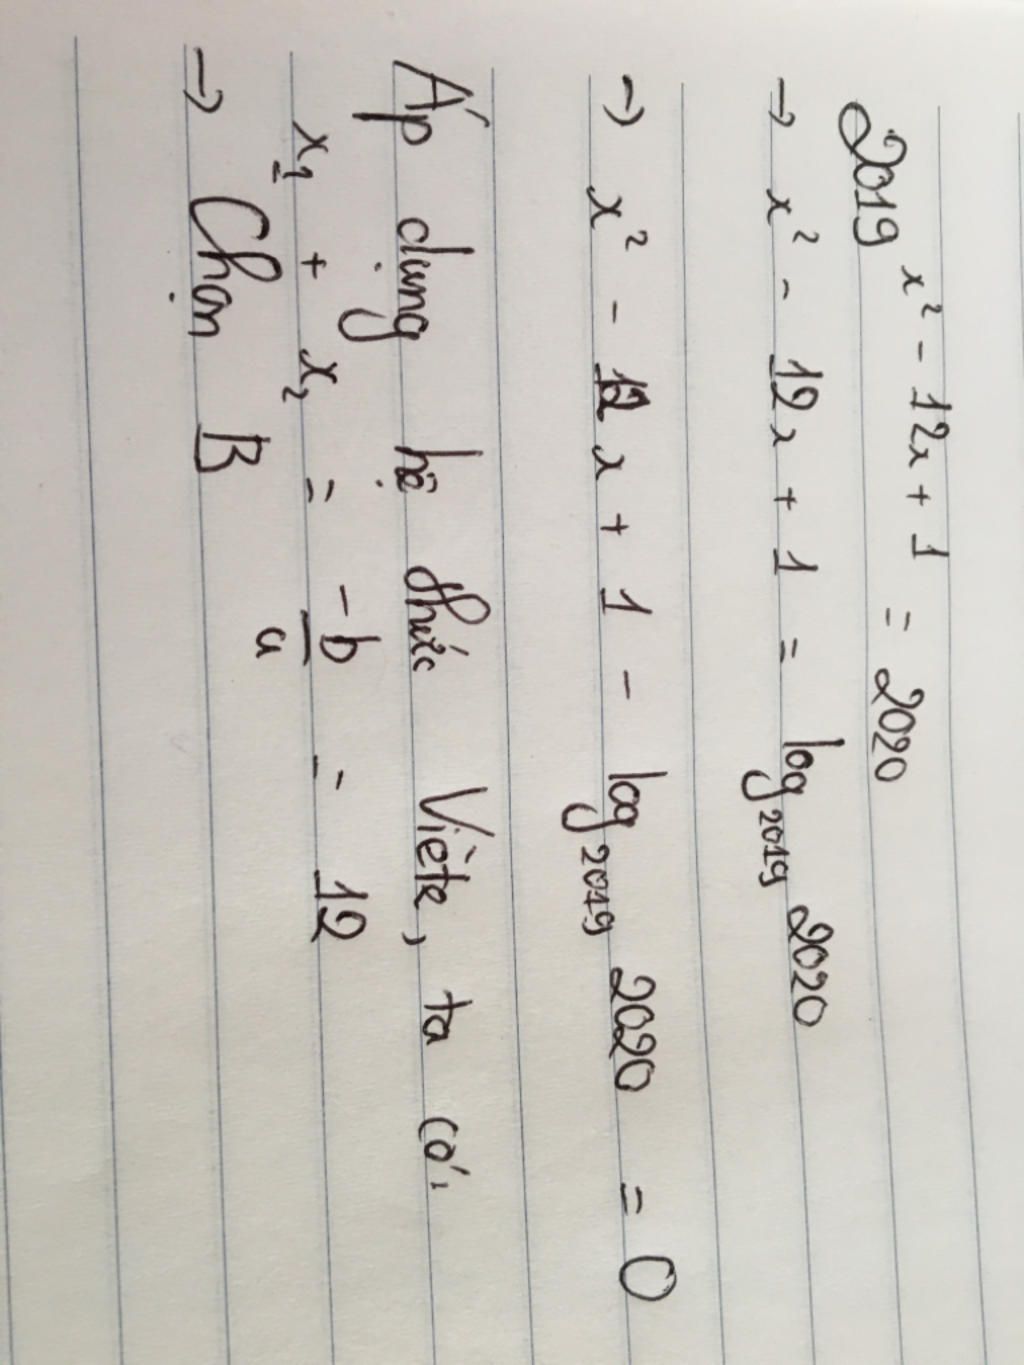 2019^(x² - 12x + 1) = 2020
→ x² - 12x + 1 = log₂₀₁₉ 2020
→ x² - 12x + 1 - log₂₀₁₉ 2020 = 0
Áp dụng hệ thức Viète, ta có,
x₁ + x₂ = -b/a = 12
→ Chọn B